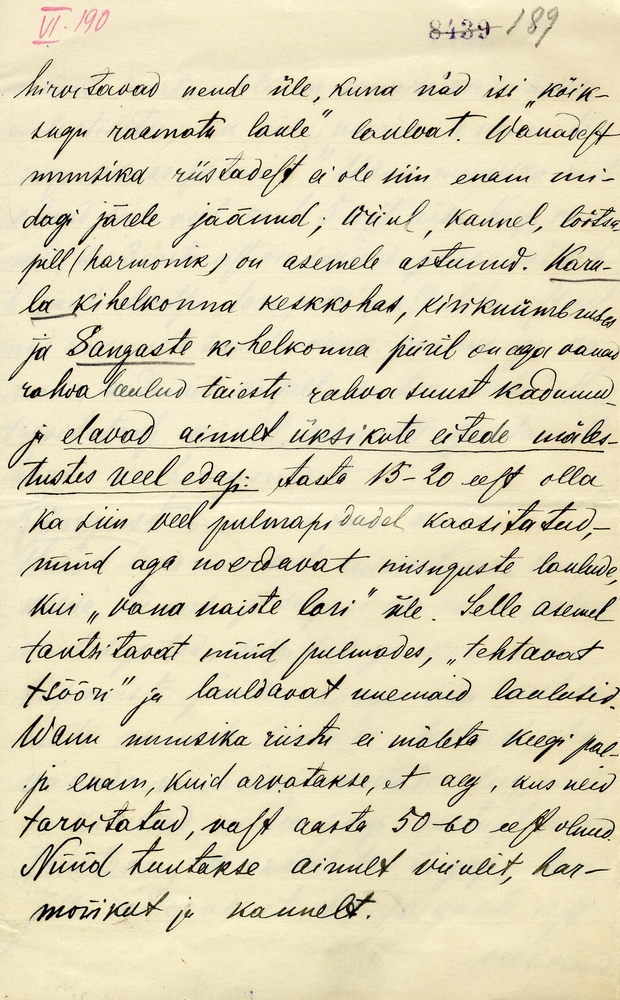 VI. 190
8439 189
hirvitavad nende üle, kuna nad isi „kõik-
sugu raamatu laule" laulvat. Wanadest
muusika riistadest ei ole siin enam mi-
dagi järele jäänud; viiul, kannel, lõõtsa
pill (harmonik) on asemele astunud. Karu-
la kihelkonna keskkohas, kiriku ümbruses
ja Sangaste kihelkonna piiril on aga vanad
rahva laulud täiesti rahva suust kadunud
ja elavad ainult üksikute eitede mäles-
tustes veel edasi: Aasta 15-20 eest olla
ka siin veel pulmapidudel kaasitatud,-
nüüd aga noerdavat niisuguste laulude,
kui „vana naiste lori" üle. Selle asemel
tantsitavat nüüd pulmades, „tehtavat
tsõõri" ja lauldavat uuemaid laulusid.
Wanu muusika riistu ei mäleta keegi pal-
ju enam, kuid arvatakse, et aeg, kus neid
tarvitatud, vast aasta 50-60 eest olnud.
Nüüd tuntakse ainult viiulit, har-
moonikat ja kannelt.